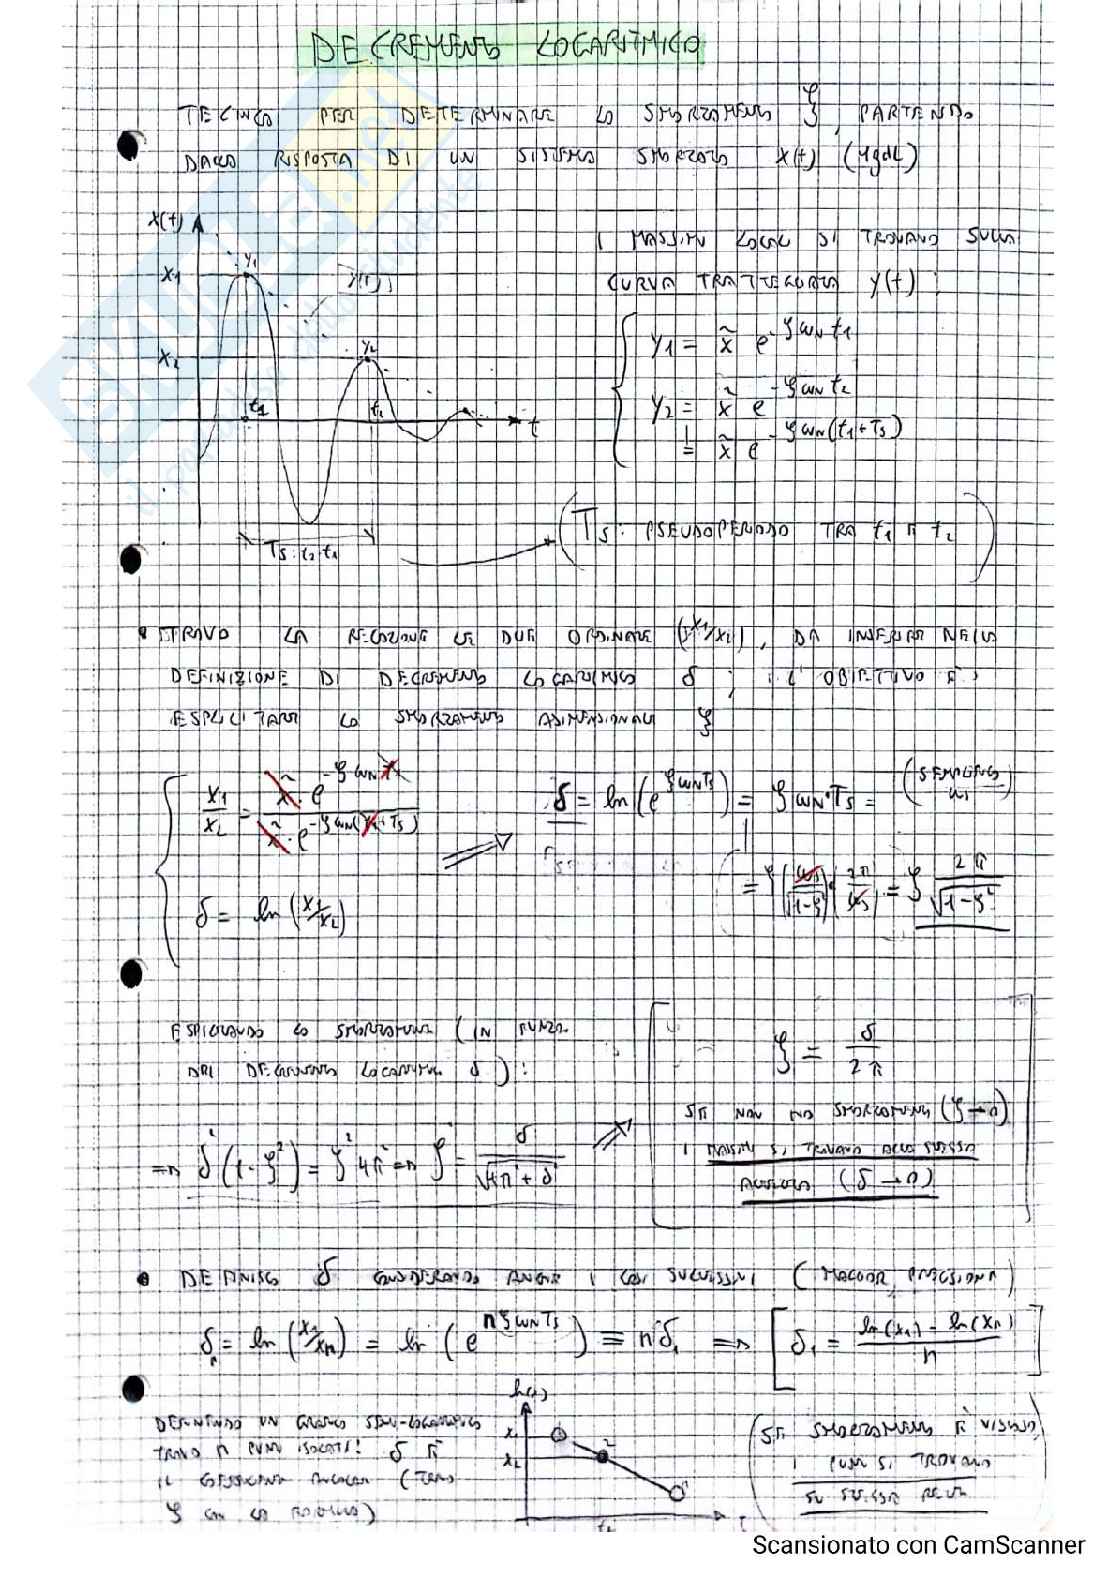 DECREMENTO LOGARITMICO
TECNICA PER DETERMINARE LO SMORZAMENTO ξ, PARTENDO
DALLA RISPOSTA DI UN SISTEMA SMORZATO X(t) (1gdL)
X(t)
X1
y1
y(t)
X2
y2
t1
t2
t
Ts = t2-t1
I MASSIMI LOCALI SI TROVANO SULLA
CURVA TRATTEGGIATA y(t):
y1 = x̃ e^-ξωN t1
y2 = x̃ e^-ξωN t2
= x̃ e^-ξωN(t1+Ts)
(Ts: PSEUDOPERIODO TRA t1 e t2)
TROVO LA RELAZIONE LE DUE ORDINATE (x1/x2), DA INSERIRE NELLA
DEFINIZIONE DI DECREMENTO LOGARITMICO δ; L'OBIETTIVO È
ESPLICITARE LO SMORZAMENTO ADIMENSIONALE ξ
x1/x2 = x̃·e^-ξωN t1 / x̃·e^-ξωN(t1+Ts)
δ = ln(x1/x2)
δ = ln(e^ξωNTs) = ξωN·Ts =
= ξ(ωs/√1-ξ²)(2π/ωs) = ξ 2π/√1-ξ²
ESPLICITANDO LO SMORZAMENTO (IN FUNZ.
DEL DECREMENTO LOGARITMICO δ):
=> δ²(1-ξ²) = ξ² 4π² => ξ = δ/√4π²+δ²
ξ = δ/2π
SE NON HO SMORZAMENTO (ξ→0)
I MASSIMI SI TROVANO ALLA STESSA
ALTEZZA (δ→0)
DEFINISCO δ CONSIDERANDO ANCHE I CASI SUCCESSIVI (MAGGIOR PRECISIONE)
δn = ln(x1/xn) = ln(e^nξωNTs) ≡ nδ1 => [δ1 = ln(x1) - ln(xn)/n]
ln(x)
x1
x2
2
DEFINENDO UN GRAFICO SEMI-LOGARITMICO
TROVO n PUNTI ISOLATI: δ È
IL COEFFICIENTE ANGOLARE (TROVO
(SE SMORZAMENTO È VISCOSO,
I PUNTI SI TROVANO
SU STESSA RETTA
Scansionato con CamScanner